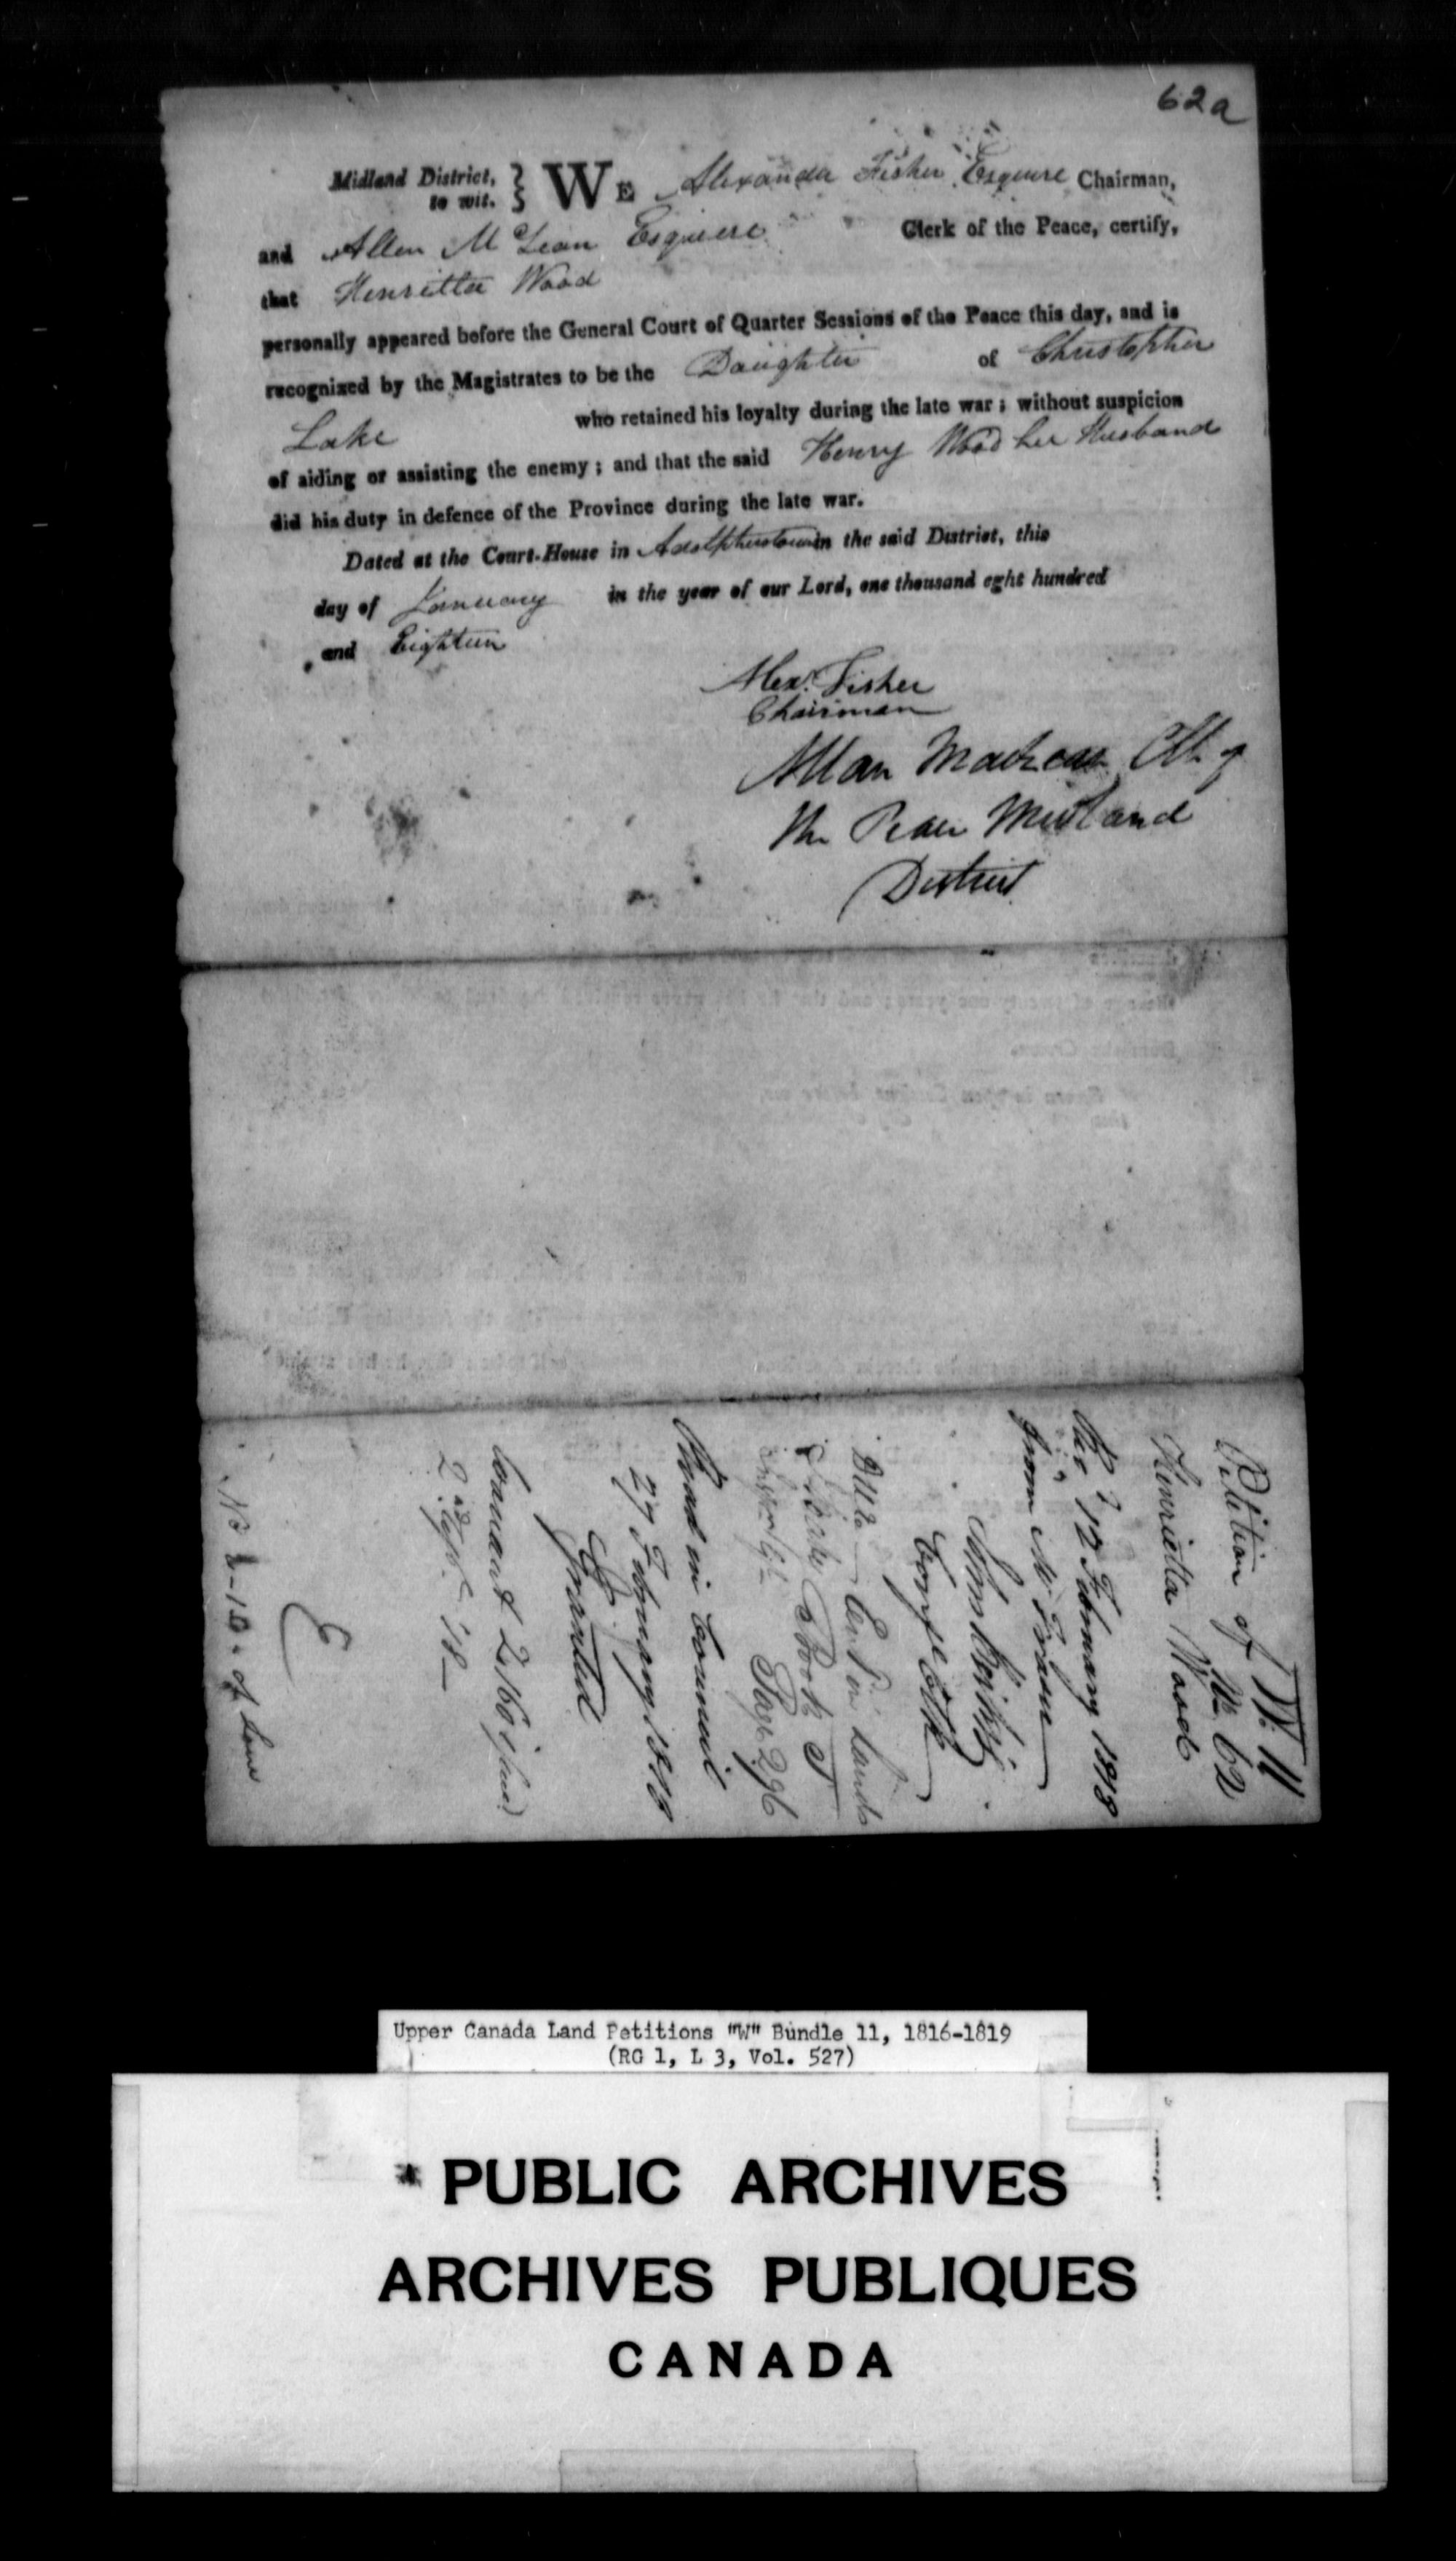 62a
Midland District, to wit. } WE Alexander Fisher Esquire Chairman,
and Allen McLean Esquire Clerk of the Peace, certify,
that Henrietta Wood
personally appeared before the General Court of Quarter Sessions of the Peace this day, and is
recognized by the Magistrates to be the Daughter of Christopher
Lake who retained his loyalty during the late war; without suspicion
of aiding or assisting the enemy; and that the said Henry Wood her Husband
did his duty in defence of the Province during the late war.
Dated at the Court-House in Adolphustown in the said District, this
day of January in the year of our Lord, one thousand eght hundred
and Eighteen
Alexr. Fisher
Chairman
Allan MacLean Clk of
the Peace Midland
District
W. 11
No. 62
Petition of
Henrietta Wood
Recd 12 February 1818
from Mr Fraser
John Beikie
Confl Clk
Book J
Page 296
Read in Council
27 February 1818
Granted
Warrant 2160 issued
2nd Sept. '18
E
Upper Canada Land Petitions "W" Bundle 11, 1816-1819
(RG 1, L 3, Vol. 527)
PUBLIC ARCHIVES
ARCHIVES PUBLIQUES
CANADA